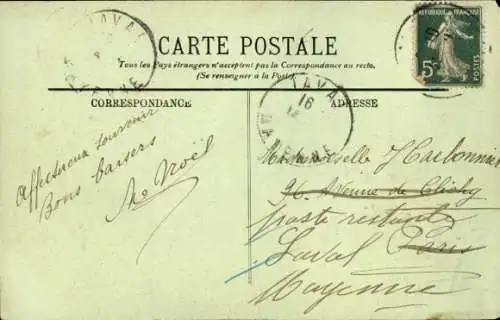 CARTE POSTALE
Tous les Pays étrangers n'acceptent pas la Correspondance au recto.
(Se renseigner à la Poste)
CORRESPONDANCE
ADRESSE
REPUBLIQUE FRANÇAISE
5c
POSTES
LAVAL
LAVAL
16
MAYENNE
Affectueux souvenir
Bons baisers
Noël
Mademoiselle
96 Avenue de Clichy
poste restante
Laval Paris
Mayenne